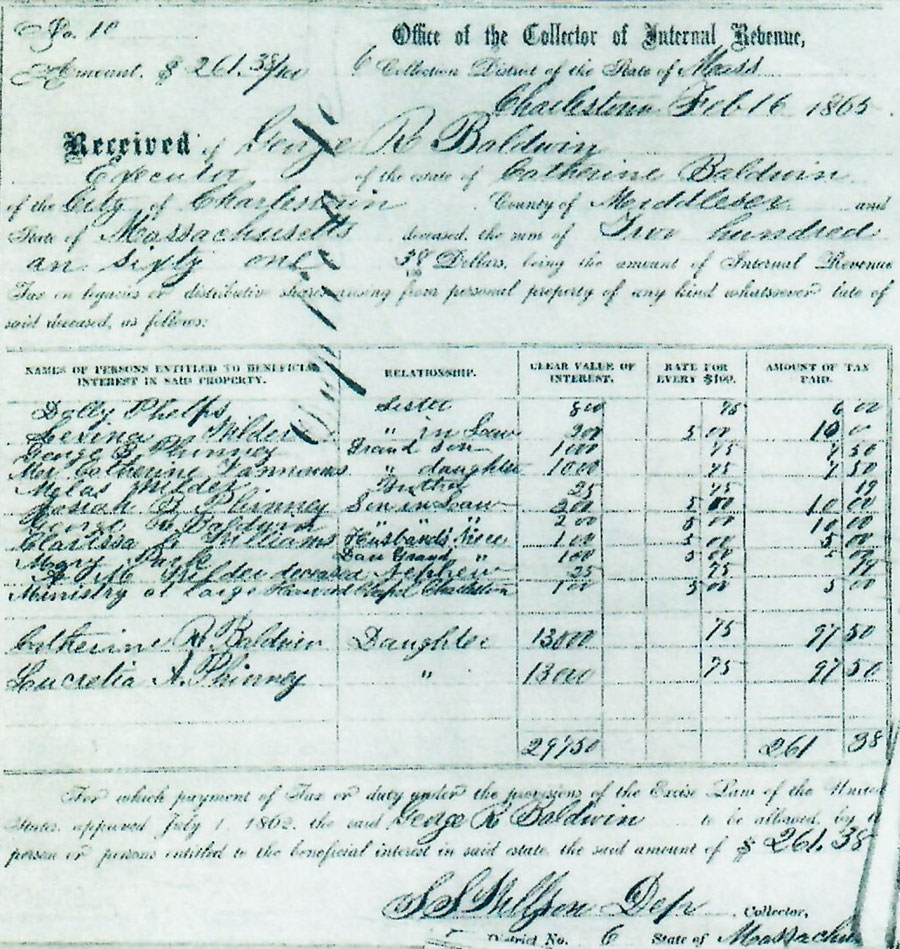 No. 10
Office of the Collector of Internal Revenue,
Amount, $ 261.38/100
6 Collection District of the State of Mass
Charlestown Feb 16 1865.
Received of George R Baldwin
Executor of the estate of Catherine Baldwin
of the City of Charlestown County of Middlesex and
State of Massachusetts deceased, the sum of Two hundred
an sixty one 38 Dollars, being the amount of Internal Revenue
Tax on legacies or distributive shares arising from personal property of any kind whatsoever late of
said deceased, as follows:
NAMES OF PERSONS ENTITLED TO BENEFICIAL INTEREST IN SAID PROPERTY. RELATIONSHIP. CLEAR VALUE OF INTEREST. RATE FOR EVERY $100. AMOUNT OF TAX PAID.
Dolly Phelps Sister 800 75 6 00
Levina Wilder " in Law 200 5 00 10 0
George B Phinney Grand Son 1000 75 7 50
Mrs Catherine " daughter 1000 75 7 50
Wilder Brother 25 75 19
Josiah B Phinney Son in Law 200 5 00 10 00
George R Baldwin " " " 200 5 00 10 00
Clarissa Williams Husband's Niece 100 5 00 5 00
Mary Park Grand " 100 5 00 5 00
Wilder deceased Nephew 25 75 19
Ministry at Large Harvard Chapel Charlestown 100 5 00 5 00
Catherine R. Baldwin Daughter 13000 75 97 50
Lucretia A. Phinney " 13000 75 97 50
29750 261 38
For which payment of Tax or duty under the provisions of the Excise Law of the United
States, approved July 1, 1862, the said George R Baldwin to be allowed, by
person or persons entitled to the beneficial interest in said estate, the said amount of $ 261.38
Dep Collector,
District No. 6 State of Massachu